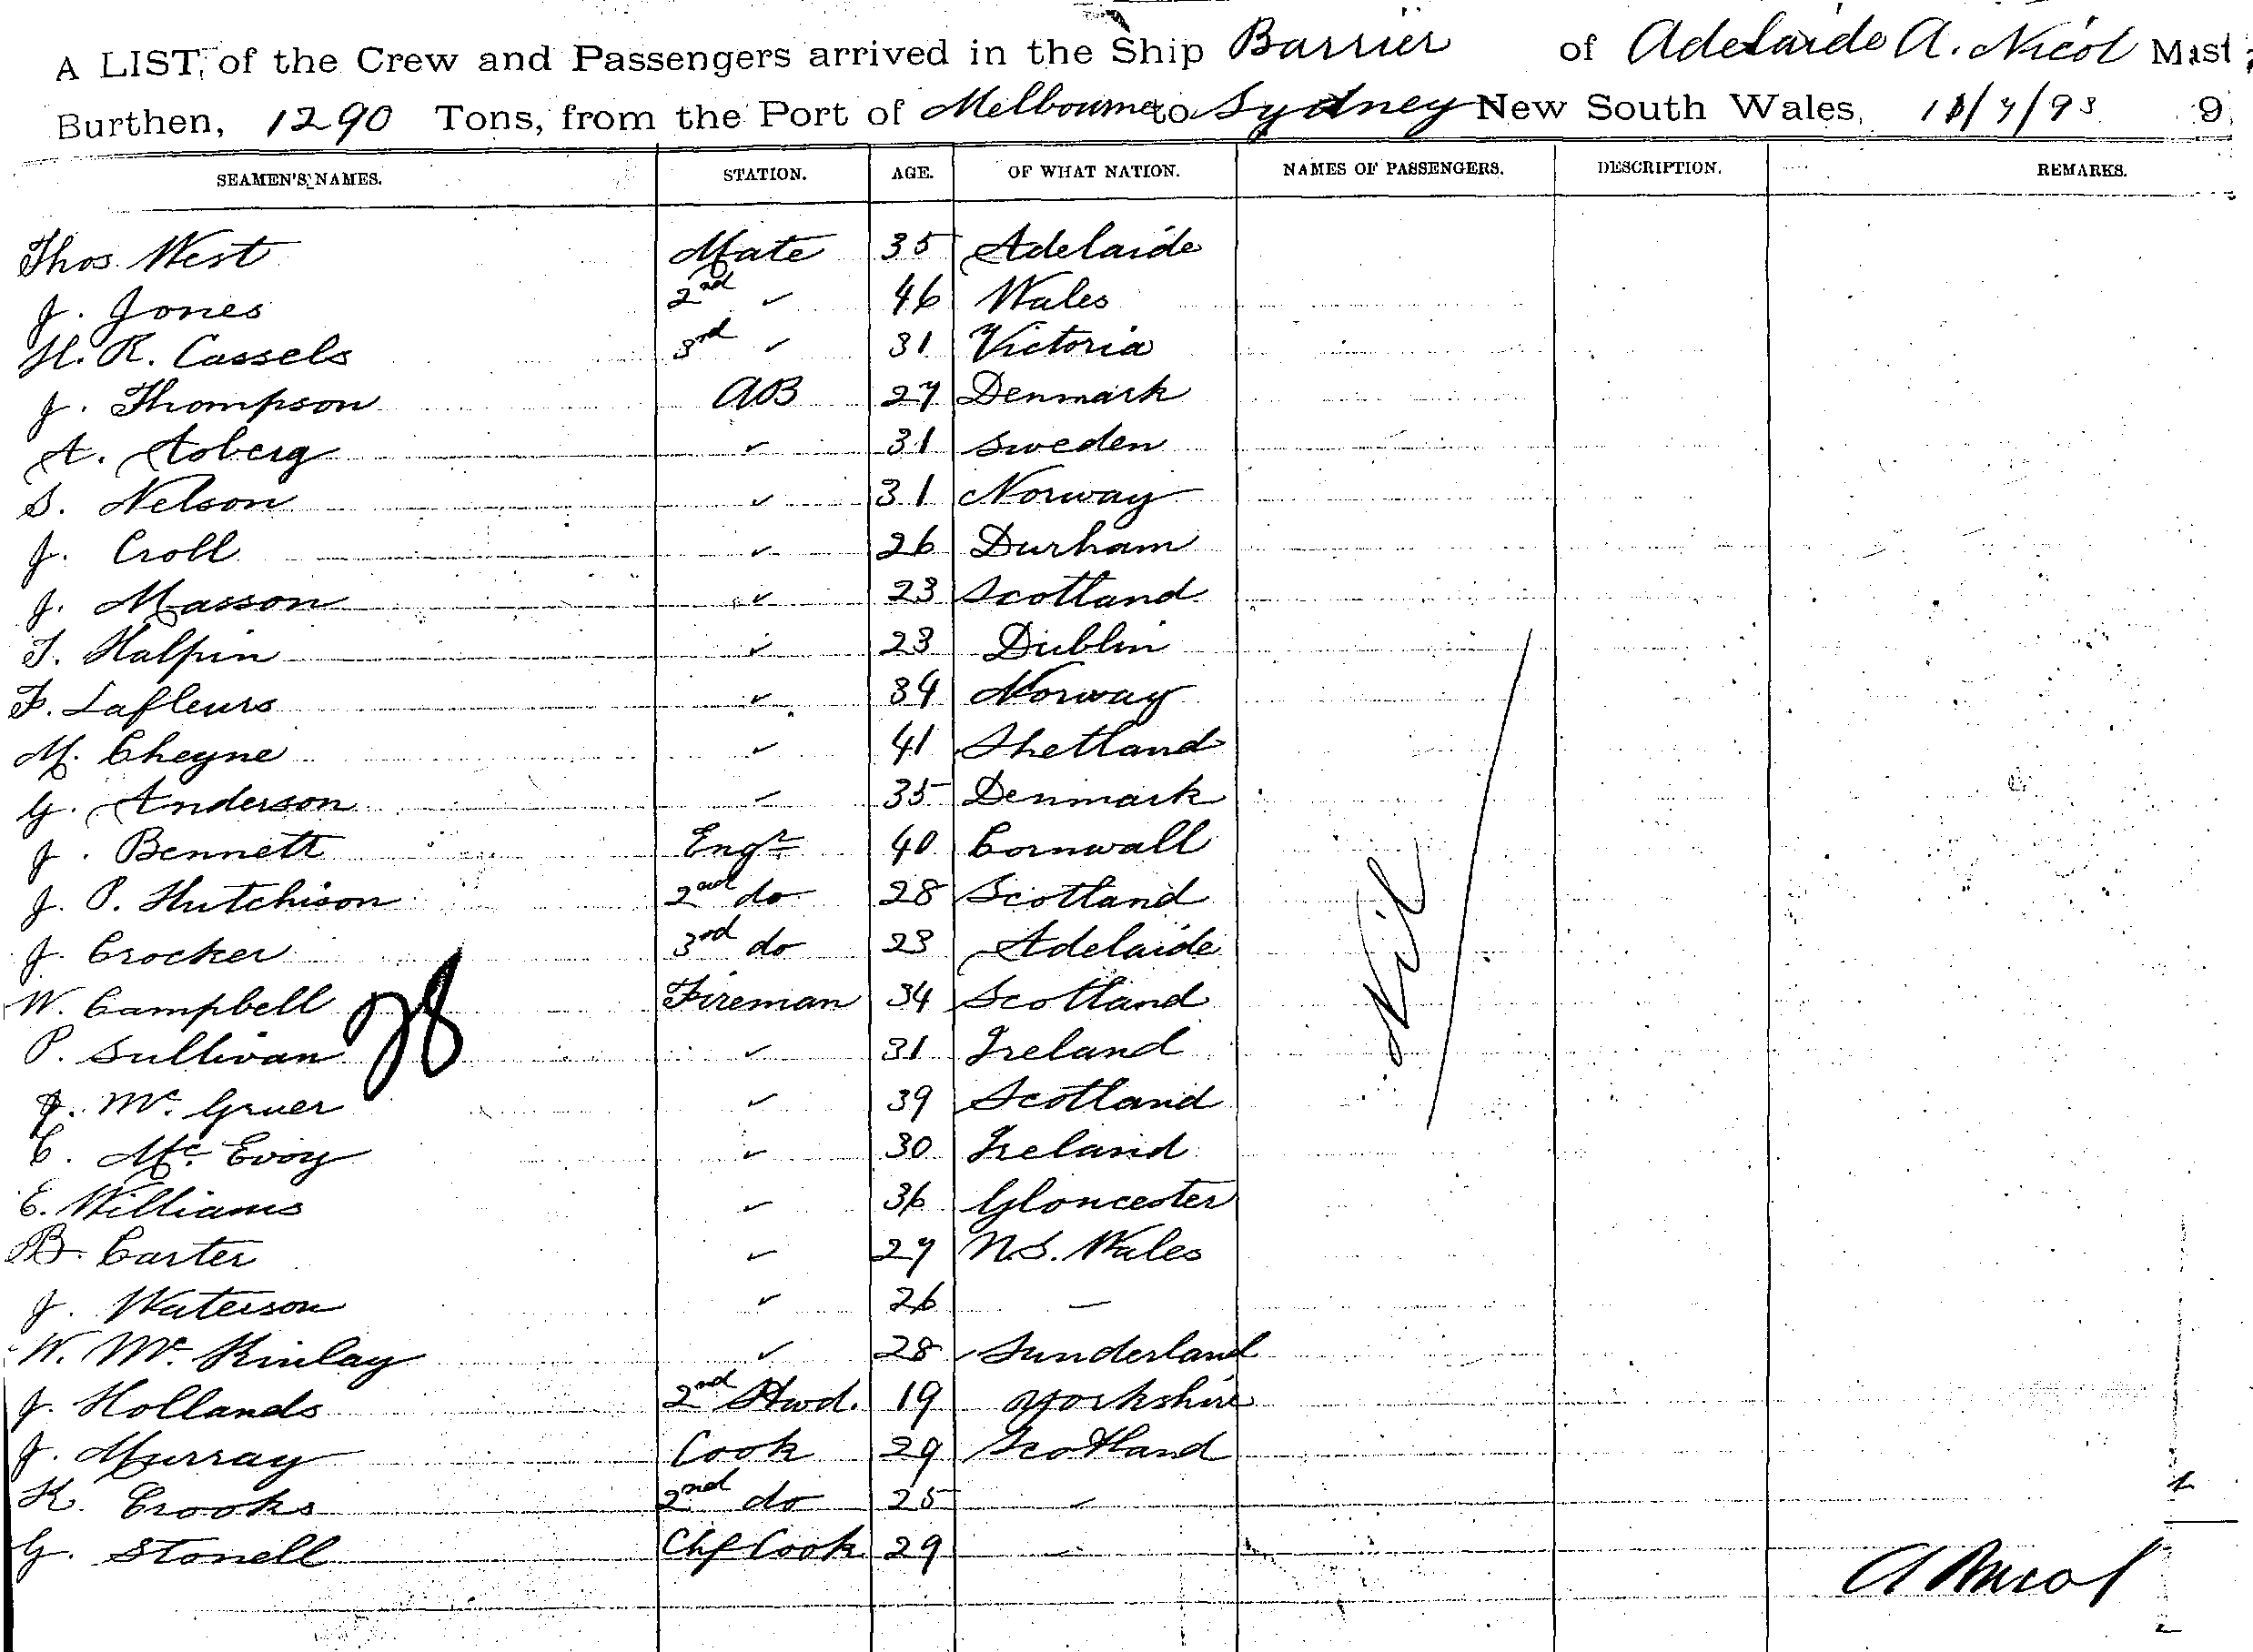 A LIST, of the Crew and Passengers arrived in the Ship Barrier of Adelaide A. Nicol Mast
Burthen, 1290 Tons, from the Port of Melbourne to Sydney New South Wales, 9
SEAMEN'S NAMES. STATION. AGE. OF WHAT NATION. NAMES OF PASSENGERS. DESCRIPTION. REMARKS.
Thos. West Mate 35 Adelaide
J. Jones 2nd ✓ 46 Wales
H. R. Cassels 3rd ✓ 31 Victoria
J. Thompson AB 27 Denmark
A. Aoberg ✓ 31 Sweden
S. Nelson ✓ 31 Norway
J. Croll ✓ 26 Durham
J. Masson ✓ 23 Scotland
T. Halpin ✓ 23 Dublin
F. Lafleurs ✓ 34 Norway
M. Cheyne ✓ 41 Shetland
G. Anderson ✓ 35 Denmark
J. Bennett Engr 40 Cornwall
J. P. Hutchison 2nd do 28 Scotland
J. Crocker 3rd do 23 Adelaide
W. Campbell Fireman 34 Scotland
28
Nil
P. Sullivan ✓ 31 Ireland
J. Mc. Gruer ✓ 39 Scotland
C. Mc. Evoy ✓ 30 Ireland
E. Williams ✓ 36 Gloucester
B. Carter ✓ 27 N.S. Wales
J. Waterson ✓ 26 —
W. Mc. Kinlay ✓ 28 Sunderland
J. Hollands 2nd Stwd. 19 Yorkshire
J. Murray Cook 29 Scotland
K. Crooks 2nd do 25 —
G. Stonell Chf Cook 29 —
A Nicol